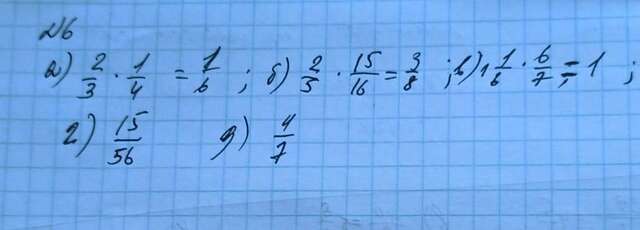 №6
а) 2/3 · 1/4 = 1/6 ; б) 2/5 · 15/16 = 3/8 ; в) 1 1/6 · 6/7 = 1 ;
г) 15/56 д) 4/7